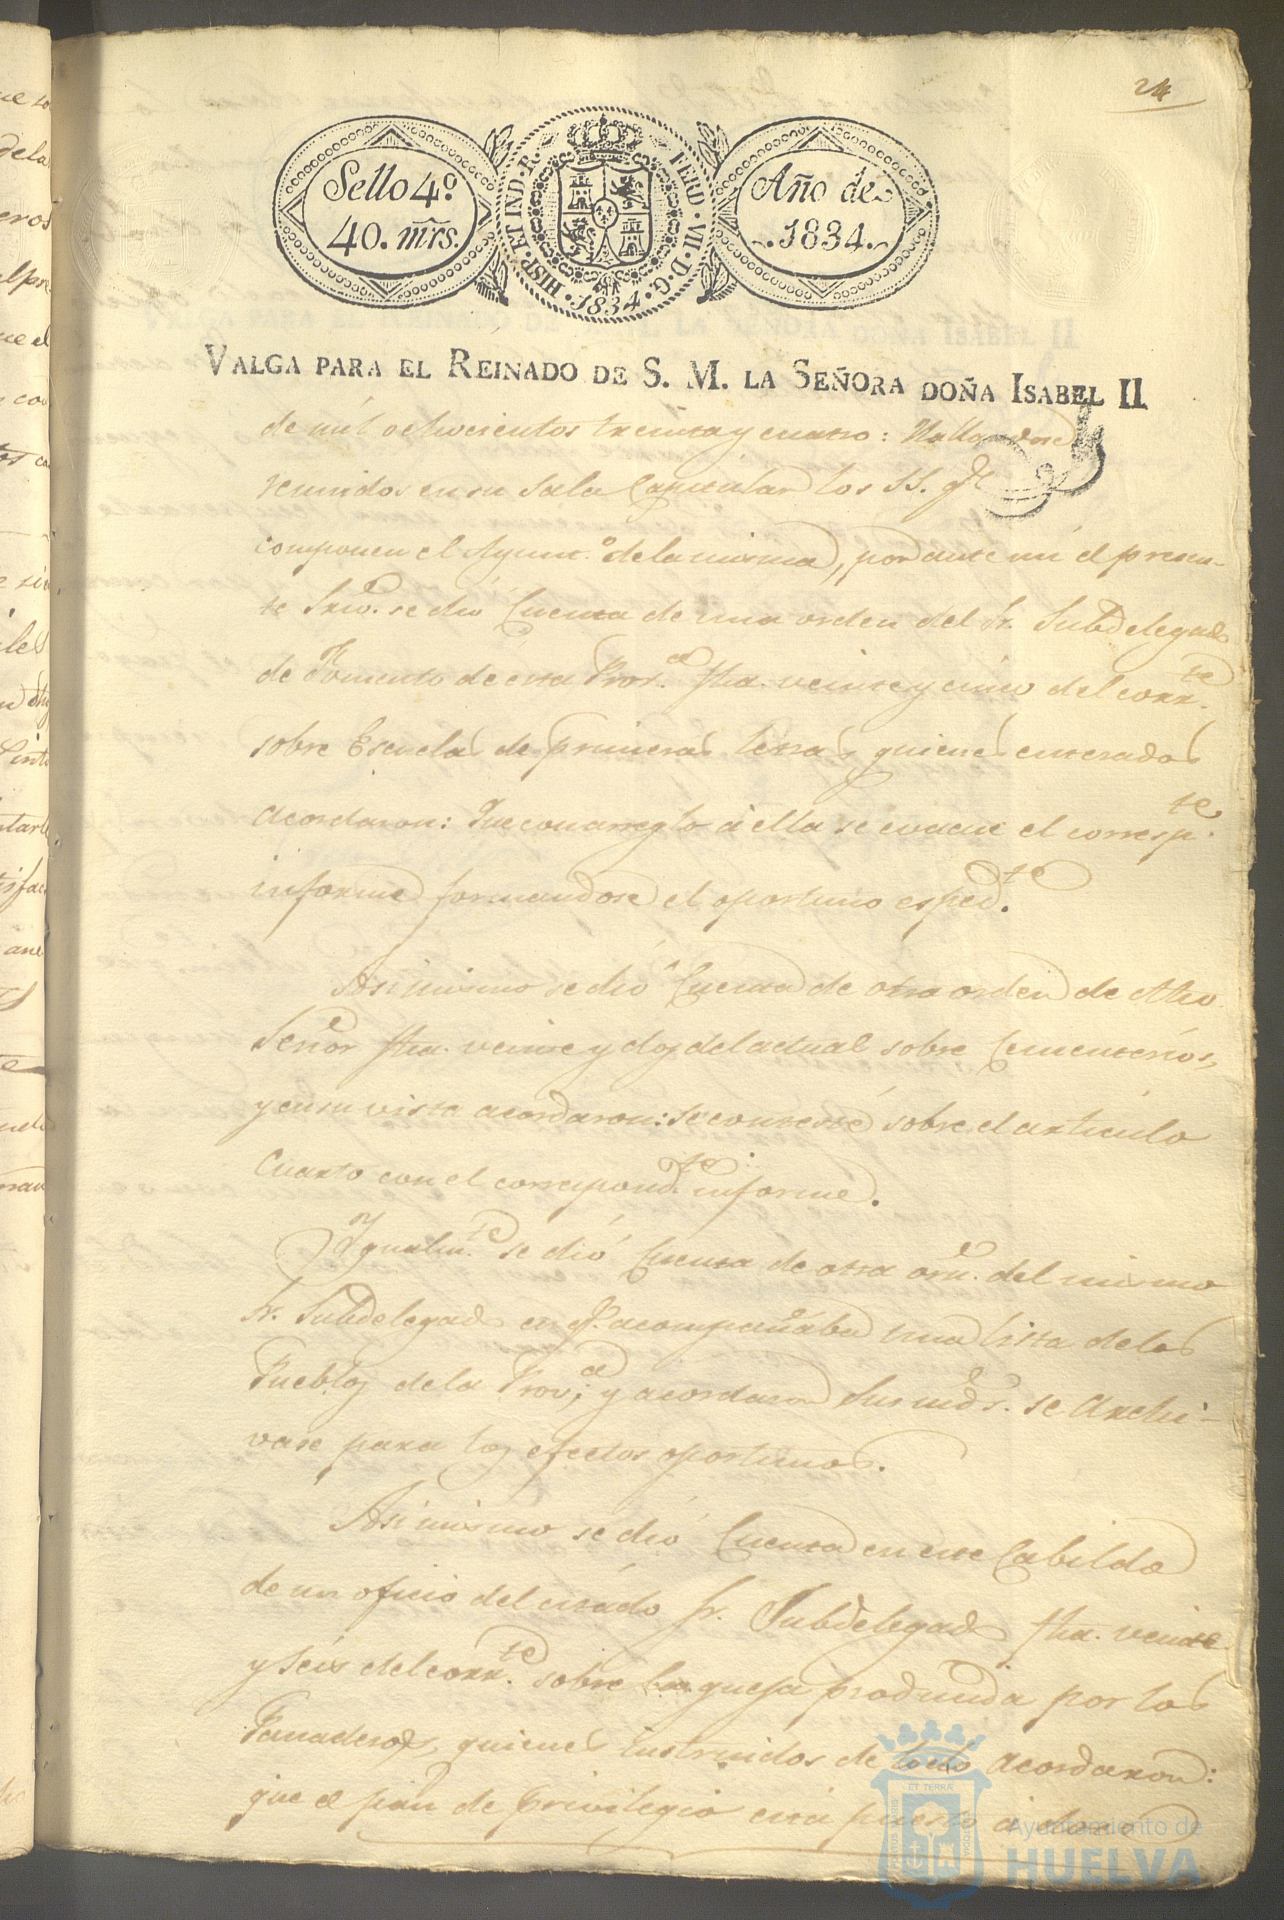 24
Sello 4º
40. mrs.
HISP. ET IND. R. FERD. VII. D. G.
1834
Año de
1834.
VALGA PARA EL REINADO DE S. M. LA SEÑORA DOÑA ISABEL II
de mil ochocientos treinta y cuatro: Hallandose
reunidos en su Sala Capitular los SS. qe
componen el Ayunt.º de la misma, por ante mi el presen-
te Srio. se dió Cuenta de una orden del Sr. Subdelegado
de Fomento de esta Prov.a fha. veinte y cinco del corr.te
sobre Escuelas de primeras letras, quienes enterados
acordaron: Que con arreglo á ella se evacue el corresp.te
informe formandose el oportuno esped.te
Asi mismo se dió Cuenta de otra orden de dho.
Señor fha. veinte y dos del actual sobre Cementerios,
y en su vista acordaron: se conteste sobre el articulo
Cuarto con el correspond.te informe.
Ygualm.te se dió Cuenta de otra orn. del mismo
Sr. Subdelegado en q.e acompañaba una lista de los
Pueblos de la Prov.a; y acordaron Sus mds. se Archi-
vase para los efectos oportunos.
Asi mismo se dió Cuenta en este Cabildo
de un oficio del citado Sr. Subdelegado fha. veinte
y seis del corr.te sobre la queja producida por los
Panaderos, quienes instruidos de todo acordaron:
que el pan de Privilegio está puesto á
Ayuntamiento de
HUELVA